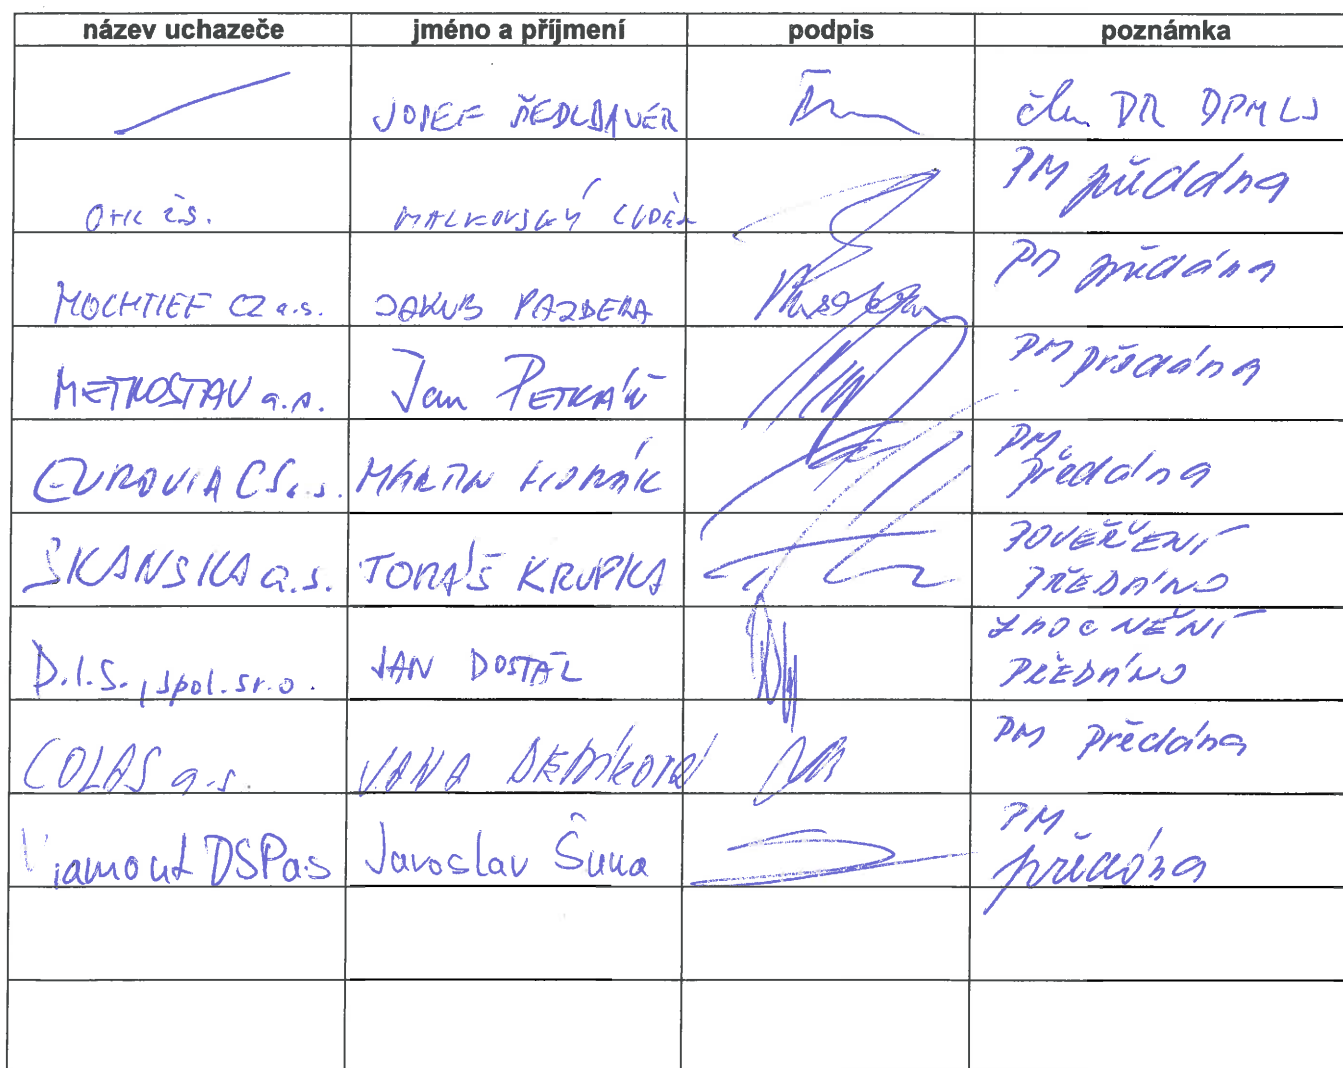 název uchazeče jméno a příjmení podpis poznámka
JOSEF ŠEDLBAUER člen DR DPMLJ
OHL ŽS. MALKOVSKÝ LUDĚK PM předána
HOCHTIEF CZ a.s. JAKUB PAZDERA PM předána
METROSTAV a.s. Jan PETRÁŇ PM předána
EUROVIA CS a.s. MARTIN HORÁK PM předána
SKANSKA a.s. TOMÁŠ KRUPKA POVĚŘENÍ
PŘEDÁNO
D.I.S., spol. s r.o. JAN DOSTÁL ZMOCNĚNÍ
PŘEDÁNO
COLAS a.s. JANA PM předána
Viamont DSP a.s. Jaroslav Šuma PM
předána